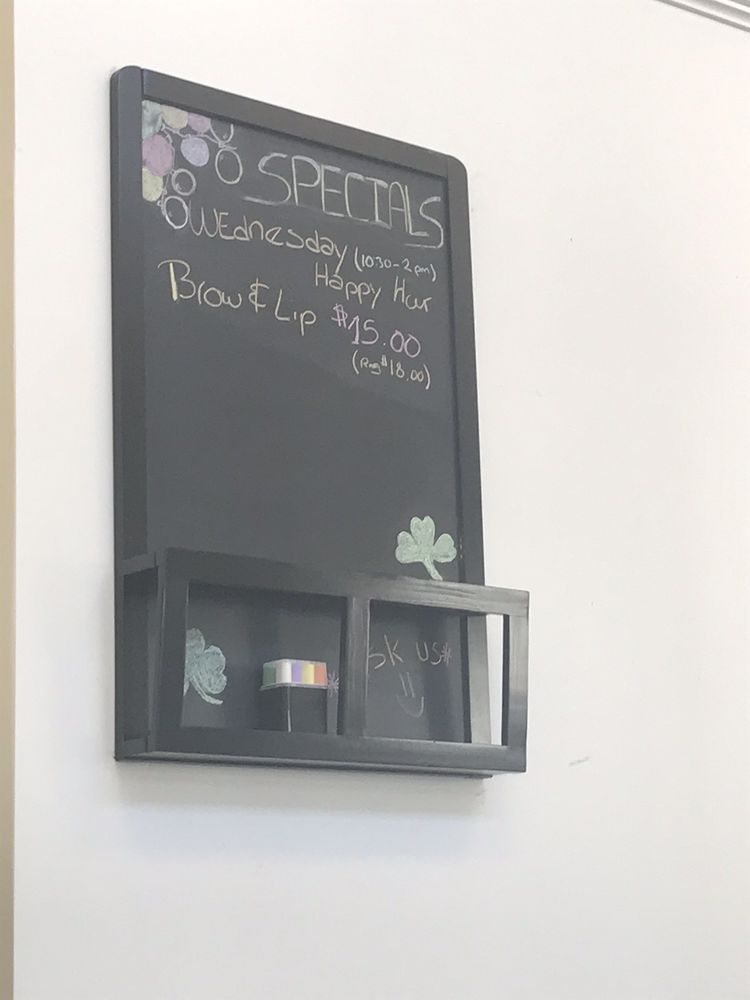 SPECIALS
WEdnesday (10:30-2pm)
Happy Hour
Brow & Lip $15.00
(Reg $18.00)
sk us